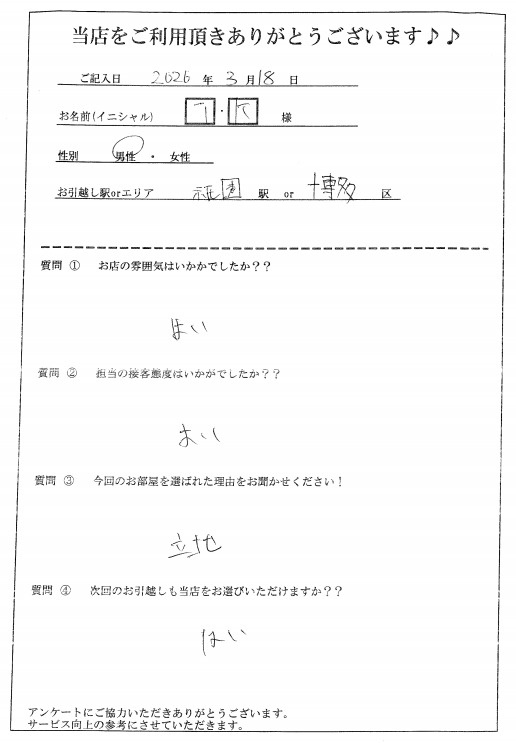 当店をご利用頂きありがとうございます♪♪
ご記入日 2026 年 3 月 18 日
お名前(イニシャル) T・K 様
性別 男性 ・ 女性
お引越し駅orエリア 祇園 駅 or 博多 区
質問 ① お店の雰囲気はいかかでしたか??
はい
質問 ② 担当の接客態度はいかがでしたか??
よい
質問 ③ 今回のお部屋を選ばれた理由をお聞かせください!
立地
質問 ④ 次回のお引越しも当店をお選びいただけますか??
はい
アンケートにご協力いただきありがとうございます。
サービス向上の参考にさせていただきます。